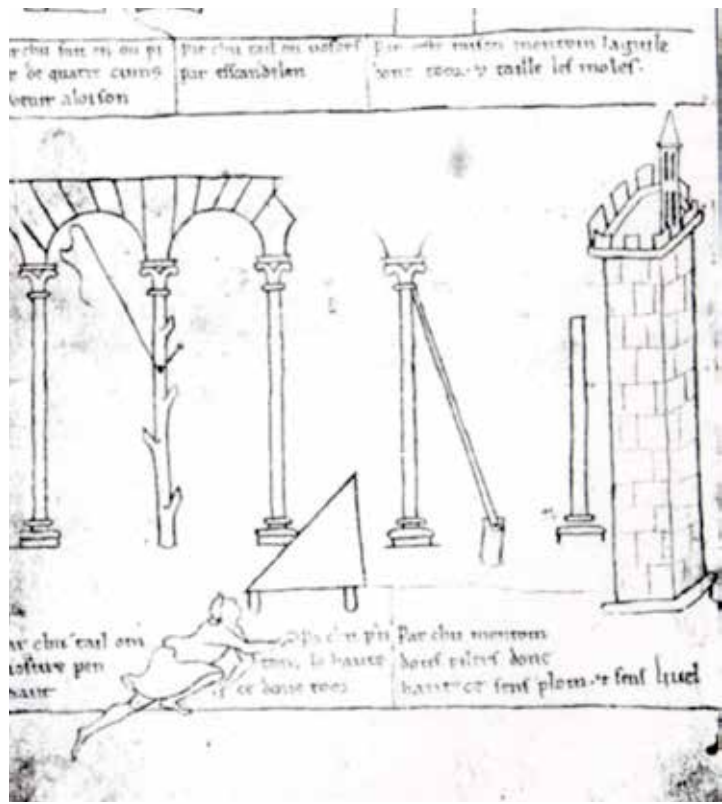 chu fait on on pi
de quatre cuings
venir a loison
par chu tail on vosors
par esscandelon
par ceste raison montom laguile
done toor & taille les moles.
chu tail om
vosure pen
par chu
la haute
ce done toor
Par chu montom
dous pilers done
hautece sens plom & sens livel